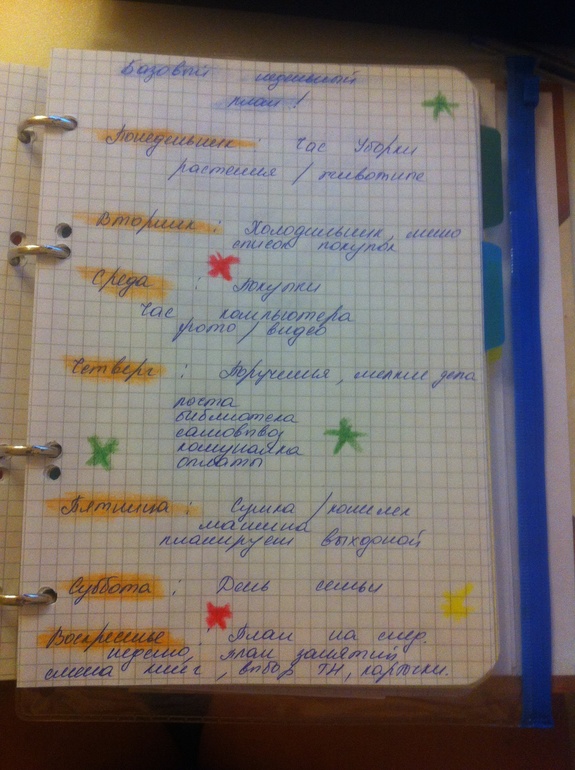 Базовый недельный
план!
Понедельник: Час Уборки
растения / животные
Вторник: Холодильник, меню
список покупок
Среда: Покупки
Час компьютера
фото / видео
Четверг: Поручения, мелкие дела
почта
библиотека
самовывоз
комуналка
оплаты
Пятница: Сумка / кошелек
машина
планируем выходной
Суббота: День семьи
Воскресенье: План на след.
неделю, план занятий,
смена книг, выбор ТН, карточки.